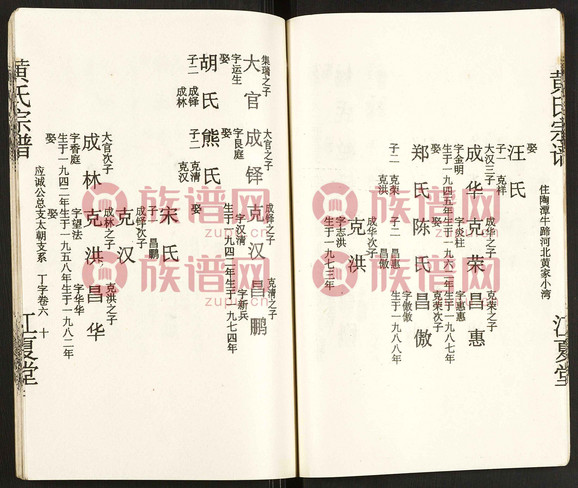 黄氏宗谱
江夏堂
住陶潭牛蹄河北黄家小湾
娶
汪氏
子一
克祥
大汉三子
成华
字金明
生于一九四五年
娶
郑氏
子二
克荣
克洪
成华之子
克荣
字炎柱
生于一九六〇年
娶
陈氏
子二
昌惠
昌傲
成华次子
克洪
字志洪
生于一九七三年
克荣之子
昌惠
字惠惠
生于一九八七年
克荣次子
昌傲
字傲傲
生于一九八八年
集瑞之子
大官
字运生
娶
胡氏
子二
成铎
成林
大官之子
成铎
字良庭
娶
熊氏
子二
克清
克汉
成铎之子
克汉
字汉清
生于一九四二年
娶
宋氏
子一
昌鹏
成铎次子
克汉
克清之子
昌鹏
字新兵
生于一九七四年
大官次子
成林
字香庭
生于一九四二年
娶
成林之子
克洪
字望法
生于一九五八年
娶
克洪之子
昌华
字华华
生于一九八二年
应诚公总支太朝支系
丁字卷六
十
黄氏宗谱
江夏堂
族谱网
族谱网
族谱网
族谱网